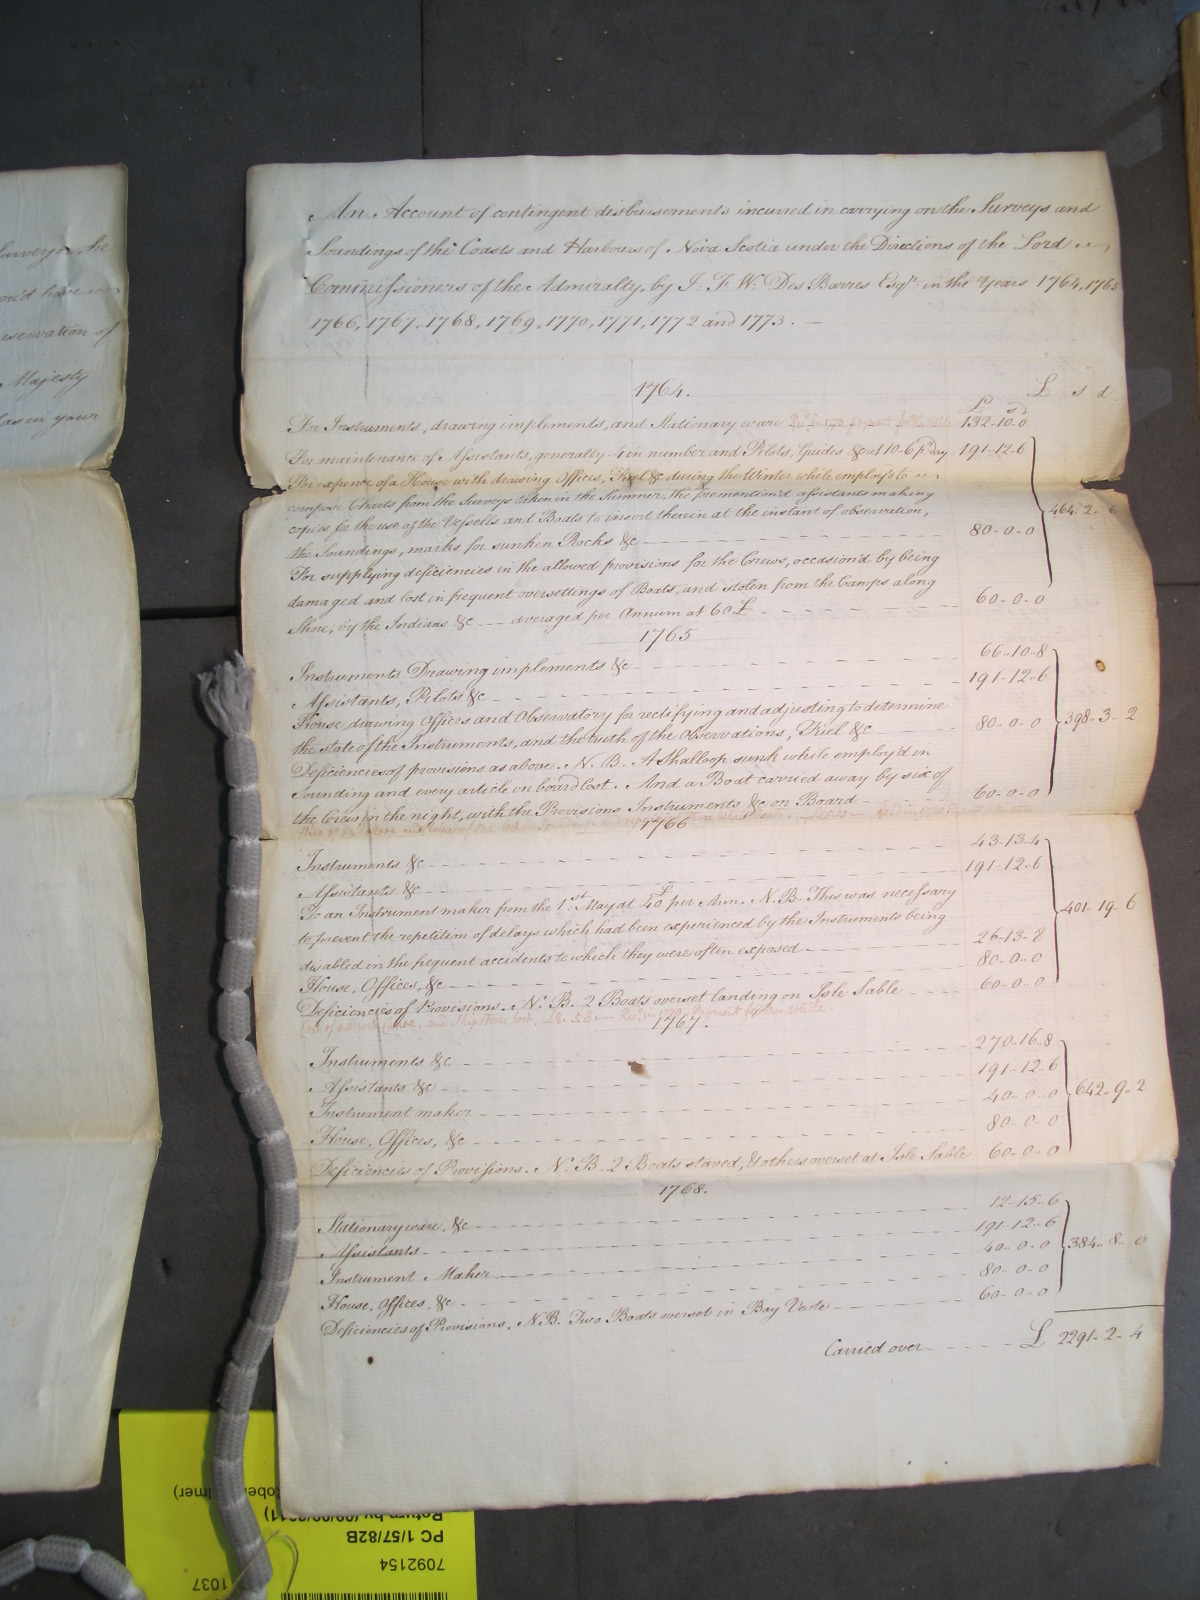 Surveyor, he
ou'd have
eservation of
Majesty
as in your
An Account of contingent disbursements incurred in carrying on the Surveys and
Soundings of the Coasts and Harbours of Nova Scotia under the Directions of the Lord
Commissioners of the Admiralty, by J. F. W. Des Barres Esqr. in the Years 1764, 1765
1766, 1767, 1768, 1769, 1770, 1771, 1772 and 1773. —
1764. £ s d
For Instruments, drawing implements, and Stationary ware £ s d 132-10-0
For maintenance of Assistants, generally 4 in number and Pilots, Guides &c at 10-6 pr day 191-12-6
For expence of a House with drawing Offices, Fuel &c during the Winter while employ'd to
compose Charts from the Surveys taken in the Summer, the forementioned assistants making
copies for the use of the Vessells and Boats to insert therein at the instant of observation, 464-2-6
the Soundings, marks for sunken Rocks &c 80-0-0
For supplying deficiencies in the allowed provisions for the Crews, occasion'd by being
damaged and lost in frequent oversettings of Boats, and stolen from the Camps along
Shore, by the Indians &c — averaged per Annum at 60£ 60-0-0
1765
Instruments Drawing implements &c 66-10-8
Assistants, Pilots &c 191-12-6
House, drawing Offices and Observatory for rectifying and adjusting to determine
the state of the Instruments, and the truth of the Observations, Fuel &c 80-0-0 398-3-2
Deficiencies of provisions as above. N.B. A Shalloop sunk while employ'd in
sounding and every article on board lost. And a Boat carried away by six of
the Crew in the night, with the Provisions Instruments &c on Board 60-0-0
1766
Instruments &c 43-13-4
Assistants &c 191-12-6
To an Instrument maker from the 1st May at 40£ per Ann. N.B. This was necessary
to prevent the repetition of delays which had been experienced by the Instruments being 401-19-6
disabled in the frequent accidents to which they were often exposed 26-13-8
House, Offices, &c 80-0-0
Deficiencies of Provisions. N.B. 2 Boats overset landing on Isle Sable 60-0-0
1767.
Instruments &c 270-16-8
Assistants &c 191-12-6
Instrument maker 40-0-0 642-9-2
House, Offices, &c 80-0-0
Deficiencies of Provisions. N.B. 2 Boats staved, & others overset at Isle Sable 60-0-0
1768.
Stationary ware, &c 12-15-6
Assistants 191-12-6
Instrument Maker 40-0-0 384-8-0
House, Offices, &c 80-0-0
Deficiencies of Provisions, N.B. Two Boats overset in Bay Verte 60-0-0
Carried over £ 2291-2-4
1037
7092154
PC 1/57/82B
Return by